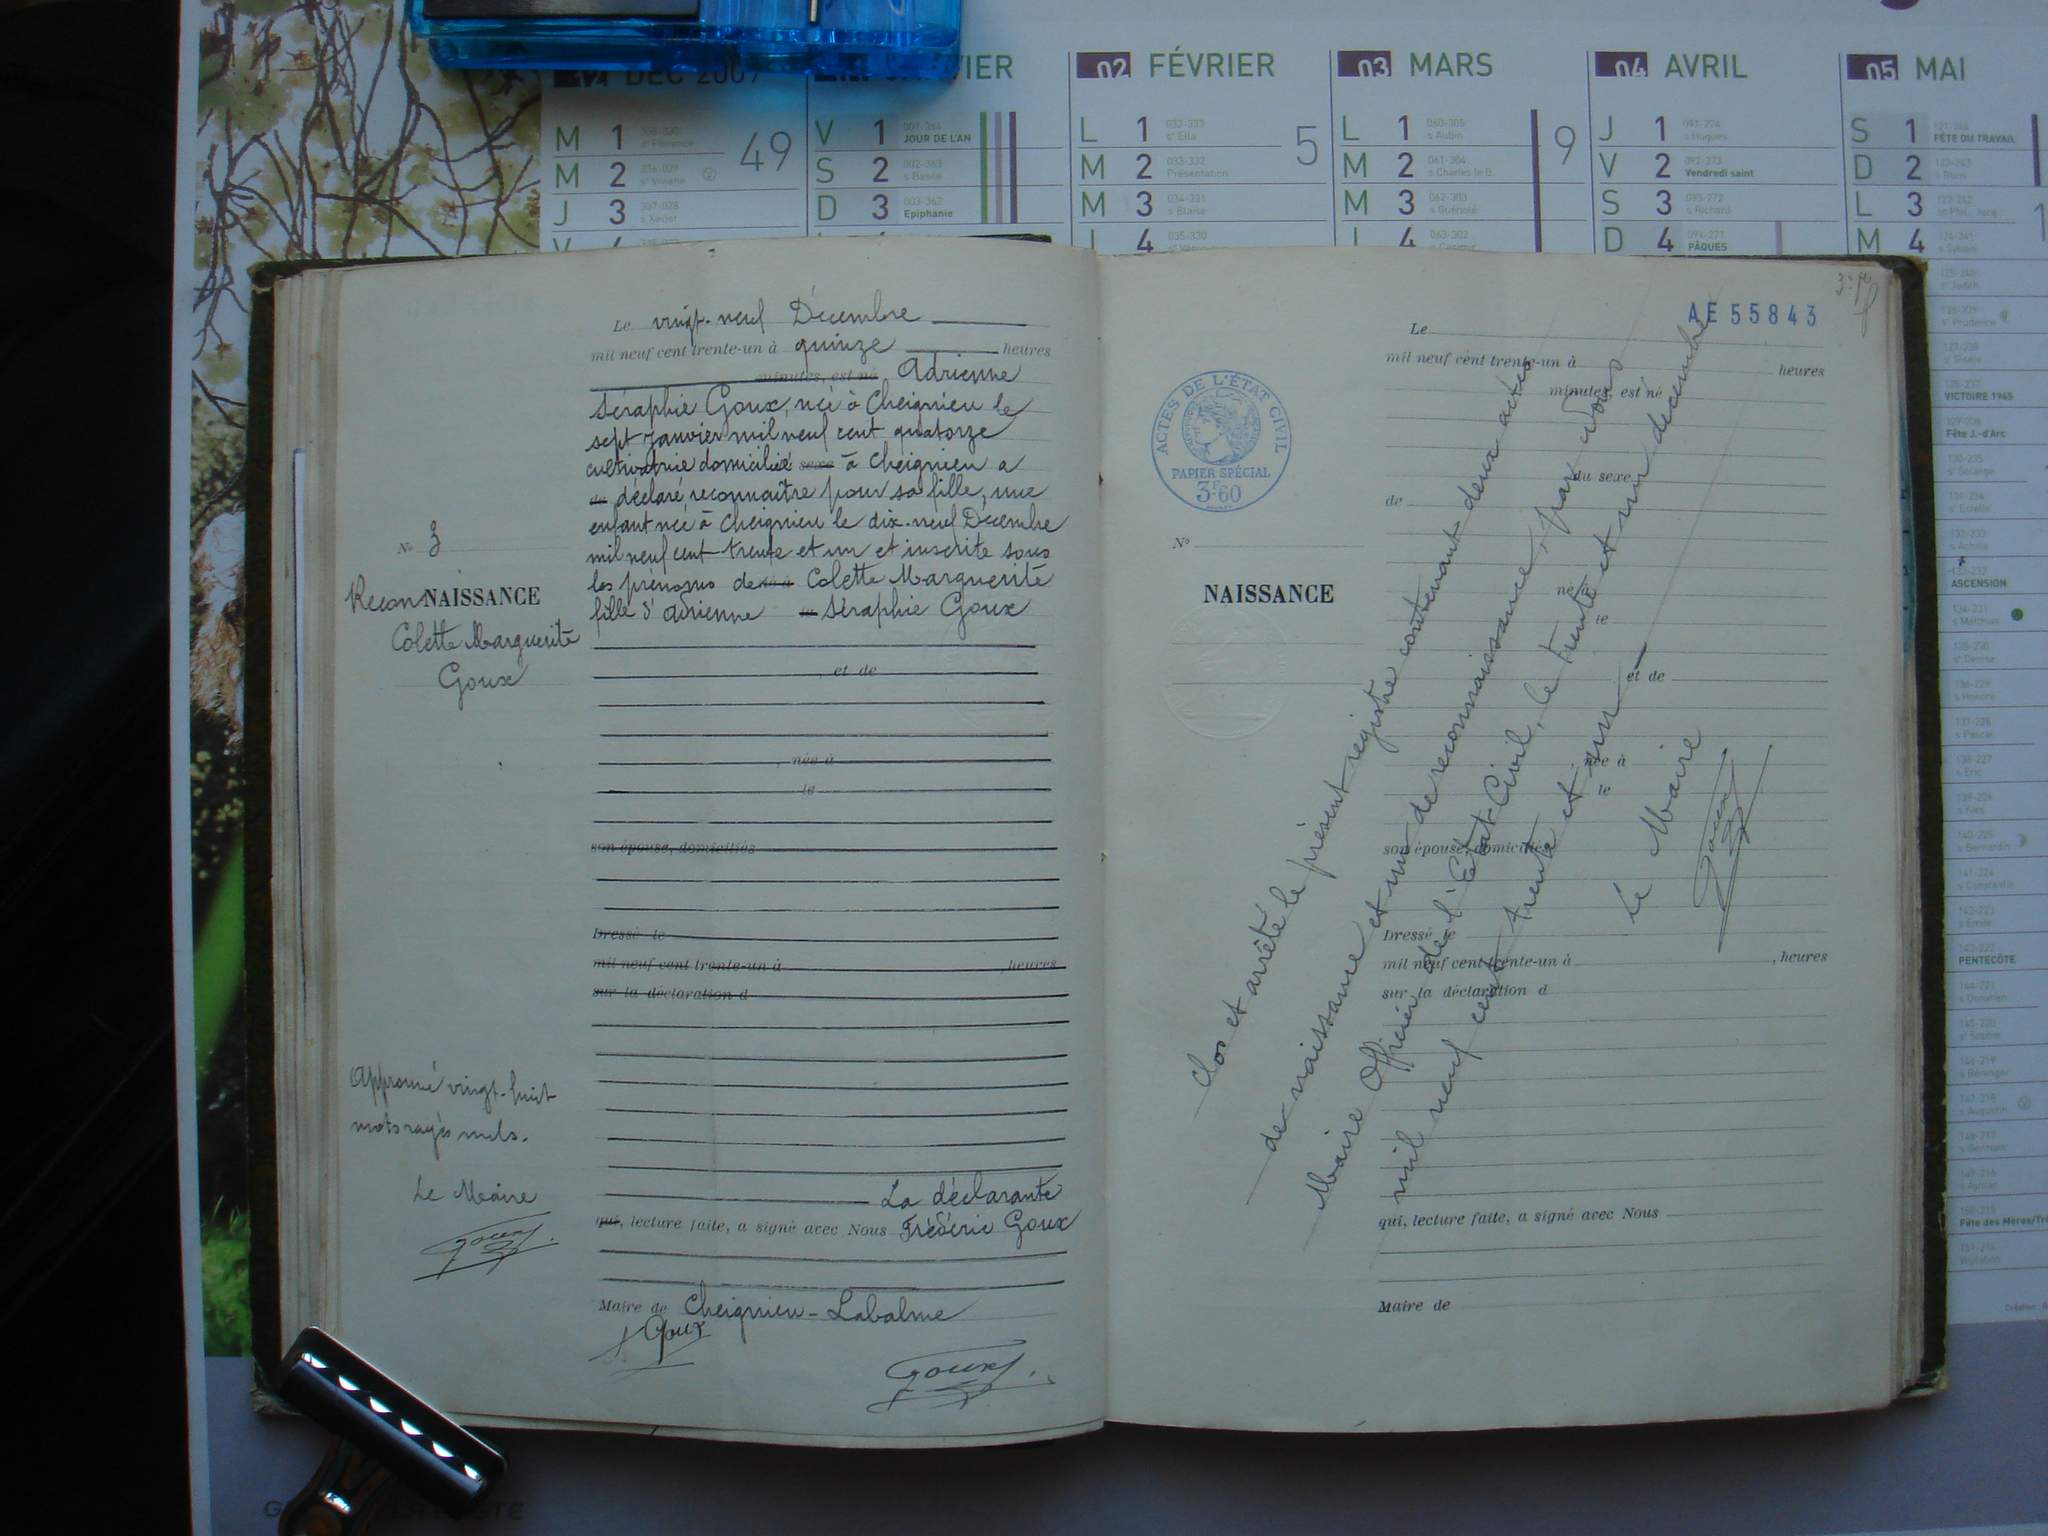 DEC 2009
VIER
02 FÉVRIER
03 MARS
04 AVRIL
05 MAI
M 1 49
M 2
J 3
V 1 JOUR DE L'AN
S 2 s Basile
D 3 Epiphanie
L 1 5
M 2 Présentation
M 3 s Blaise
J 4
L 1 s Aubin 9
M 2 s Charles le B.
M 3 s Guénolé
J 4
J 1 s Hugues
V 2 Vendredi saint
S 3 s Richard
D 4 PÂQUES
S 1 FÊTE DU TRAVAIL
D 2
L 3
M 4
VICTOIRE 1945
Fête J.-d'Arc
ASCENSION
PENTECÔTE
Le vingt-neuf Décembre
mil neuf cent trente-un à quinze heures
minutes, est né Adrienne
Séraphie Goux, née à Cheignieu le
sept Janvier mil neuf cent quatorze
cultivatrice domiciliée sexe à Cheignieu a
déclaré reconnaître pour sa fille, une
enfant née à Cheignieu le dix-neuf Décembre
mil neuf cent trente et un et inscrite sous
les prénoms de Colette Marguerite
fille d'Adrienne Séraphie Goux
, et de
, née à
le
son épouse, domiciliés
Dressé le
mil neuf cent trente-un à , heures
sur la déclaration d
La déclarante
qui, lecture faite, a signé avec Nous Frédéric Goux
Maire de Cheignieu-Labalme
Goux
Goux
N° 3
Recon NAISSANCE
Colette Marguerite
Goux
Approuvé vingt-huit
mots rayés nuls.
Le Maire
Goux
AE 55843
ACTES DE L'ÉTAT CIVIL
PAPIER SPÉCIAL
3F60
N°
NAISSANCE
Le
mil neuf cent trente-un à heures
minutes, est né
du sexe
de
né à
le
et de
, née à
le
son épouse, domiciliés
Dressé le
mil neuf cent trente-un à , heures
sur la déclaration d
qui, lecture faite, a signé avec Nous
Maire de
Clos et arrêté le présent registre contenant deux actes
de naissance et un de reconnaissance, par nous
Maire Officier de l'Etat-Civil, le trente et un décembre
mil neuf cent trente et un
Le Maire
Goux